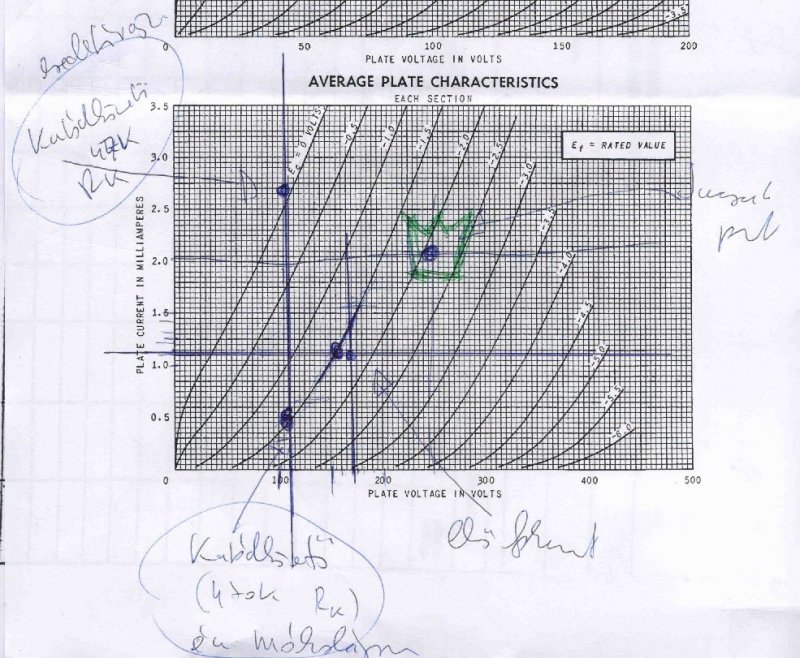 -3.5
0 50 100 150 200
PLATE VOLTAGE IN VOLTS
AVERAGE PLATE CHARACTERISTICS
EACH SECTION
Katódkövető
47K
RK
PLATE CURRENT IN MILLIAMPERES
3.5
3.0
2.5
2.0
1.5
1.0
0.5
0
Ec = 0 VOLTS
-0.5
-1.0
-1.5
-2.0
-2.5
-3.0
-3.5
-4.0
-4.5
-5.0
-5.5
-6.0
Ef = RATED VALUE
100 200 300 400 500
PLATE VOLTAGE IN VOLTS
Katódkövető
(470K RK)